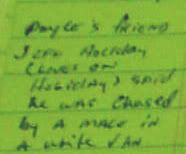 Doyle's friend
Jero Holiday
(Loves on
Holiday) said
he was chased
by a male in
a white van